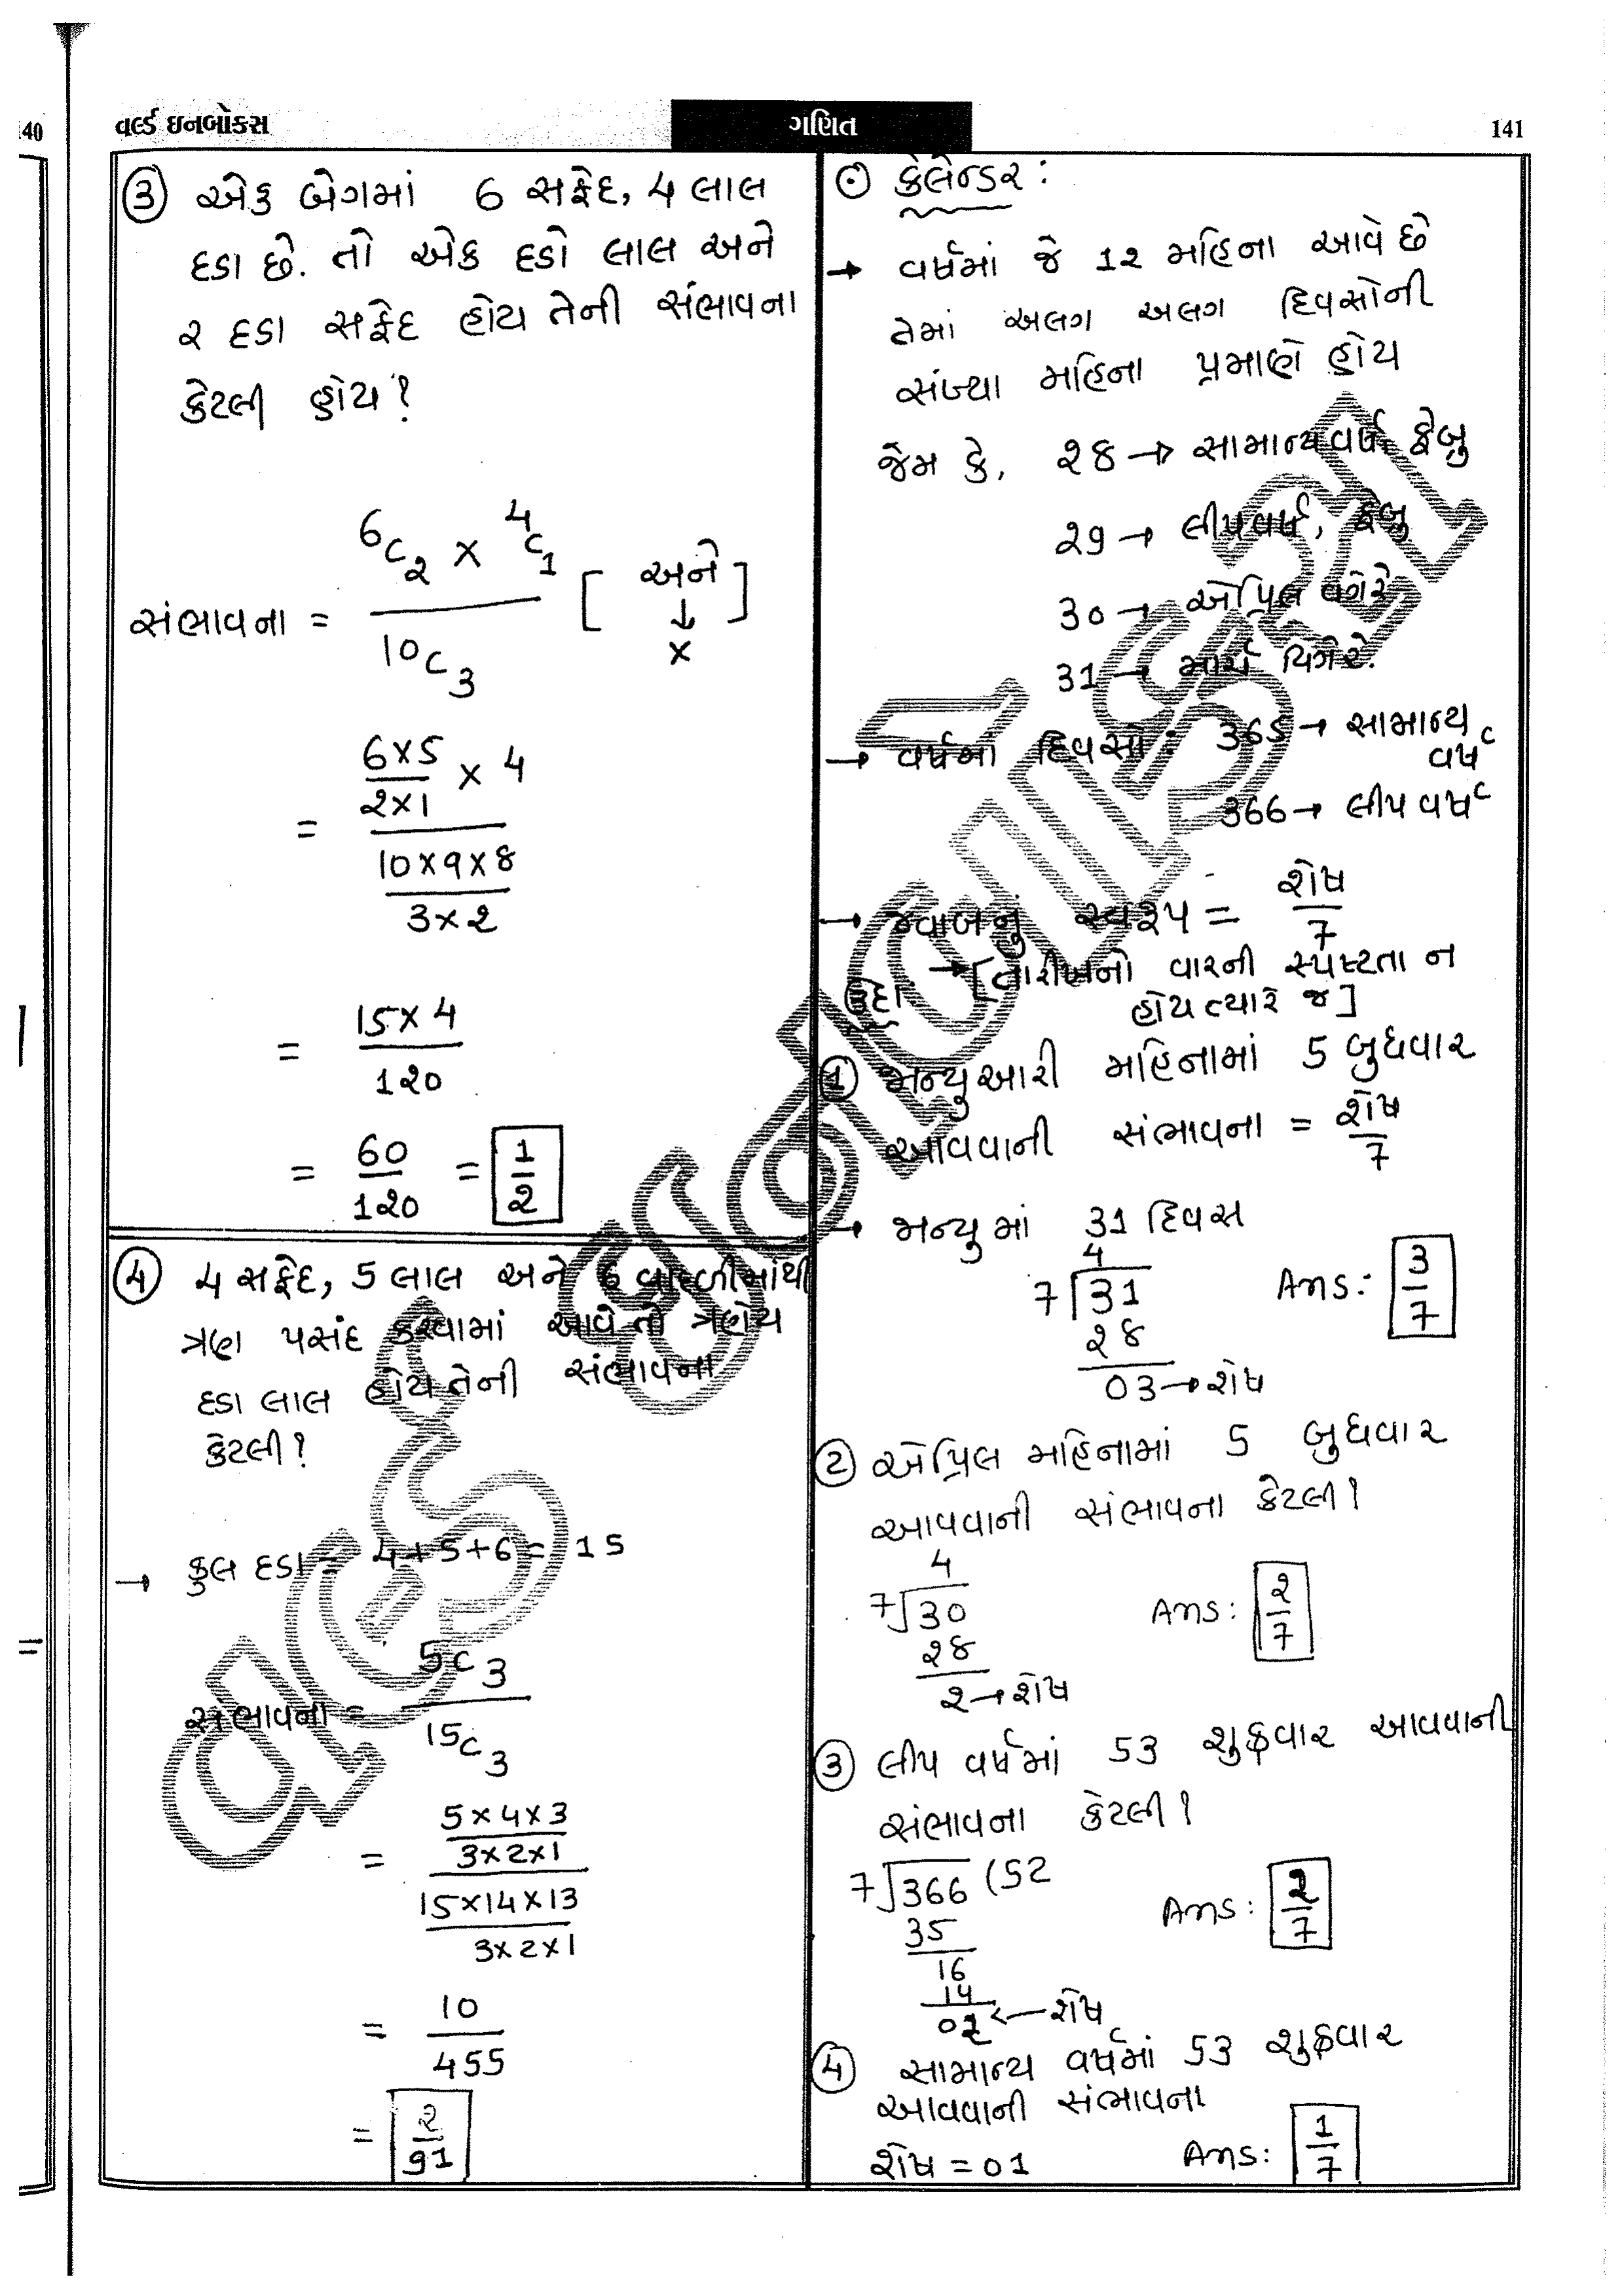 40
વર્લ્ડ ઇનબોક્સ
ગણિત
141
③ એક બેગમાં 6 સફેદ, 4 લાલ
દડા છે. તો એક દડો લાલ અને
૨ દડા સફેદ હોય તેની સંભાવના
કેટલી હોય?
સંભાવના = 6C2 × 4C1 / 10C3 [ અને ↓ × ]
= 6×5/2×1 × 4 / 10×9×8/3×2
= 15×4/120
= 60/120 = 1/2
④ 4 સફેદ, 5 લાલ અને 6 વાદળીમાંથી
ત્રણ પસંદ કરવામાં આવે તો ત્રણેય
દડા લાલ હોય તેની સંભાવના
કેટલી?
→ કુલ દડા = 4+5+6 = 15
સંભાવના = 5C3 / 15C3
= 5×4×3/3×2×1 / 15×14×13/3×2×1
= 10/455
= 2/91
⊙ કેલેન્ડર :
→ વર્ષમાં જે 12 મહિના આવે છે
તેમાં અલગ અલગ દિવસોની
સંખ્યા મહિના પ્રમાણે હોય
જેમ કે, 28 → સામાન્ય વર્ષ, ફેબ્રુ
29 → લીપવર્ષ, ફેબ્રુ
30 → એપ્રિલ વગેરે
31 → માર્ચ વિગેરે.
→ વર્ષના દિવસો : 365 → સામાન્ય
વર્ષ
366 → લીપ વર્ષ
→ જવાબનું સ્વરૂપ = શેષ/7
→ [તારીખનો વારની સ્પષ્ટતા ન
હોય ત્યારે જ]
① જાન્યુઆરી મહિનામાં 5 બુધવાર
આવવાની સંભાવના = શેષ/7
→ જાન્યુ માં 31 દિવસ
4
7 31 Ans: 3/7
28
03 → શેષ
② એપ્રિલ મહિનામાં 5 બુધવાર
આવવાની સંભાવના કેટલી?
4
7 30 Ans: 2/7
28
2 → શેષ
③ લીપ વર્ષમાં 53 શુક્રવાર આવવાની
સંભાવના કેટલી?
7 366 (52 Ans: 2/7
35
16
14
02 ← શેષ
④ સામાન્ય વર્ષમાં 53 શુક્રવાર
આવવાની સંભાવના
શેષ = 01 Ans: 1/7